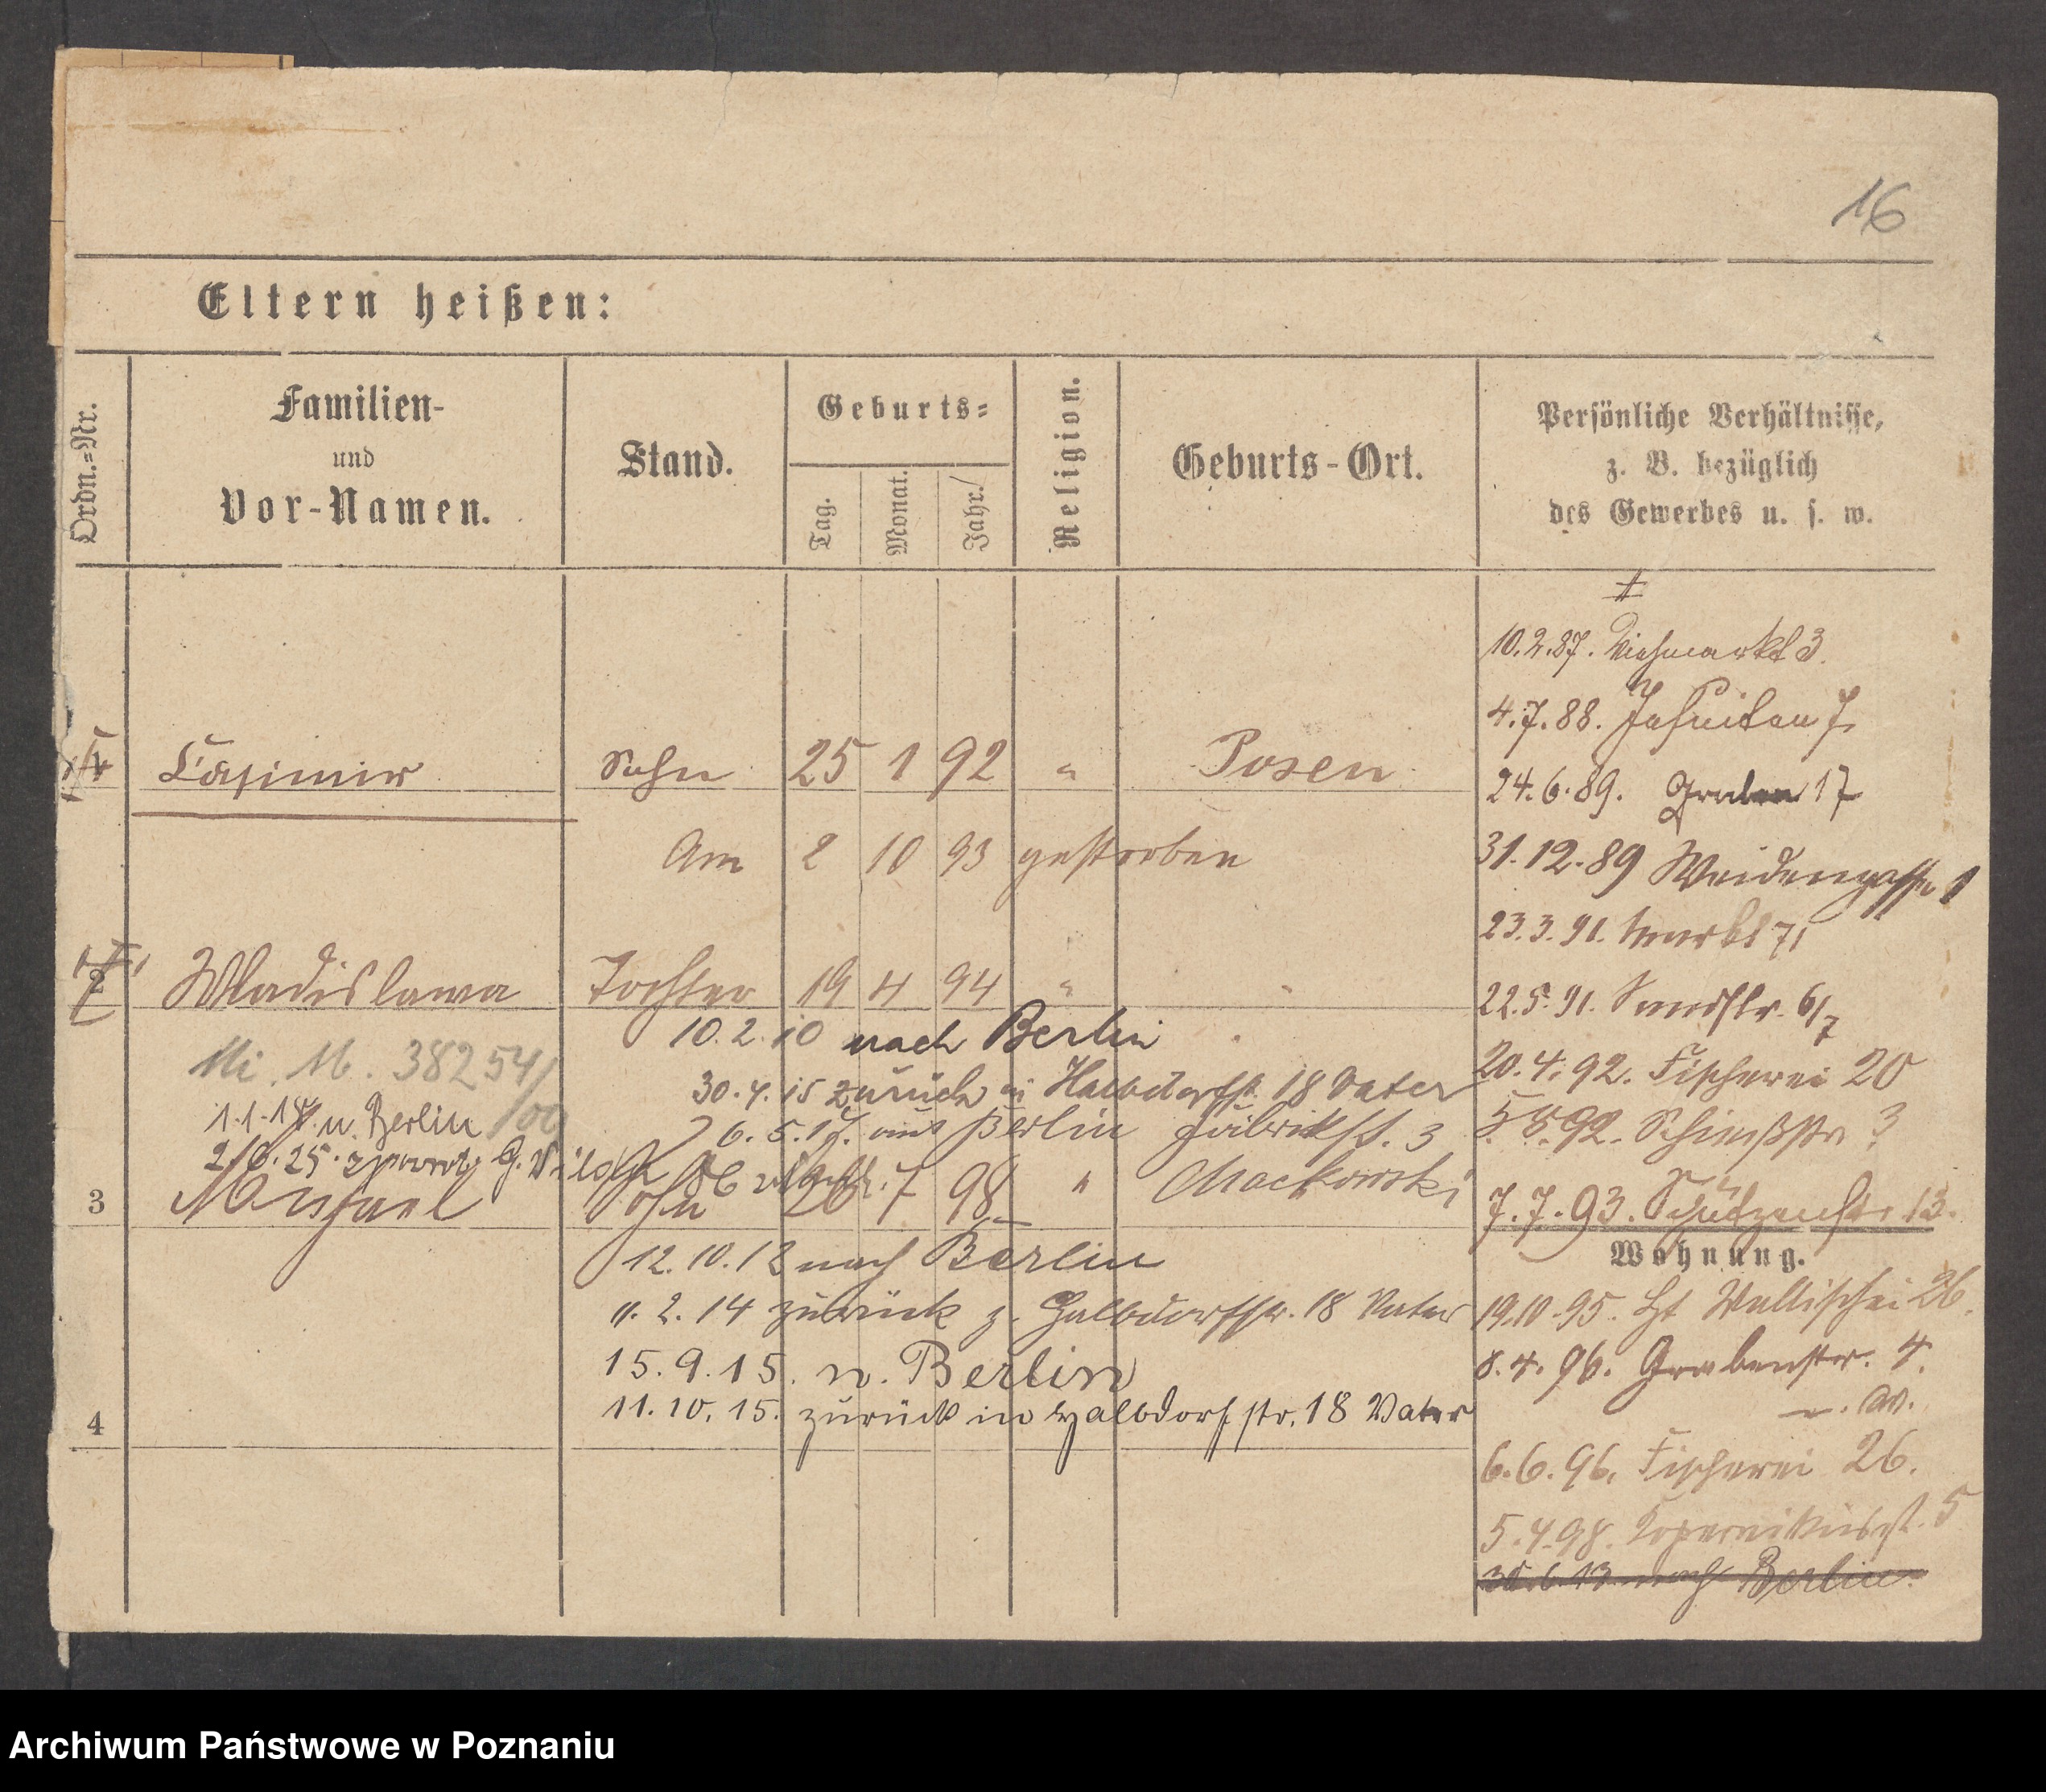 16
Eltern heißen:
Ordn.=Nr.
Familien-
und
Vor-Namen.
Stand.
Geburts=
Tag.
Monat.
Jahr.
Religion.
Geburts-Ort.
Persönliche Verhältnisse,
z. B. bezüglich
des Gewerbes u. s. w.
10.2.87. Viehmarkt 3.
4.7.88. Jesuiten 7.
Casimir Sohn 25 1 92 " Posen
24.6.89. Graben 17
Am 2 10 93 gestorben
31.12.89 Weidengasse 1
23.3.91. Markt 71
2 Wladislawa Tochter 19 4 94 " "
22.5.91. Sandstr. 6/7
10.2.10 nach Berlin
20.4.92. Fischerei 20
38254/
30.4.15 zurück Halbdorfstr. 18 Vater
1.1.18 n. Berlin
6.5.17. aus Berlin Fabrikst. 3
5.8.92. Schießstr 3
25.
3 Michael Sohn 26 7 98 " Mackowski
7.7.93. Schützenstr. 13.
Wohnung.
12.10.12 nach Berlin
2.14 zurück z. Halbdorfstr. 18 Vater
19.10.95. Wallischei 26.
15.9.15. n. Berlin
8.4.96. Grabenstr. 4.
11.10.15. zurück in Halbdorfstr. 18 Vater
4
6.6.96. Fischerei 26.
5.4.98. Kopernikusst. 5
30.6.13 nach Berlin.
Archiwum Państwowe w Poznaniu